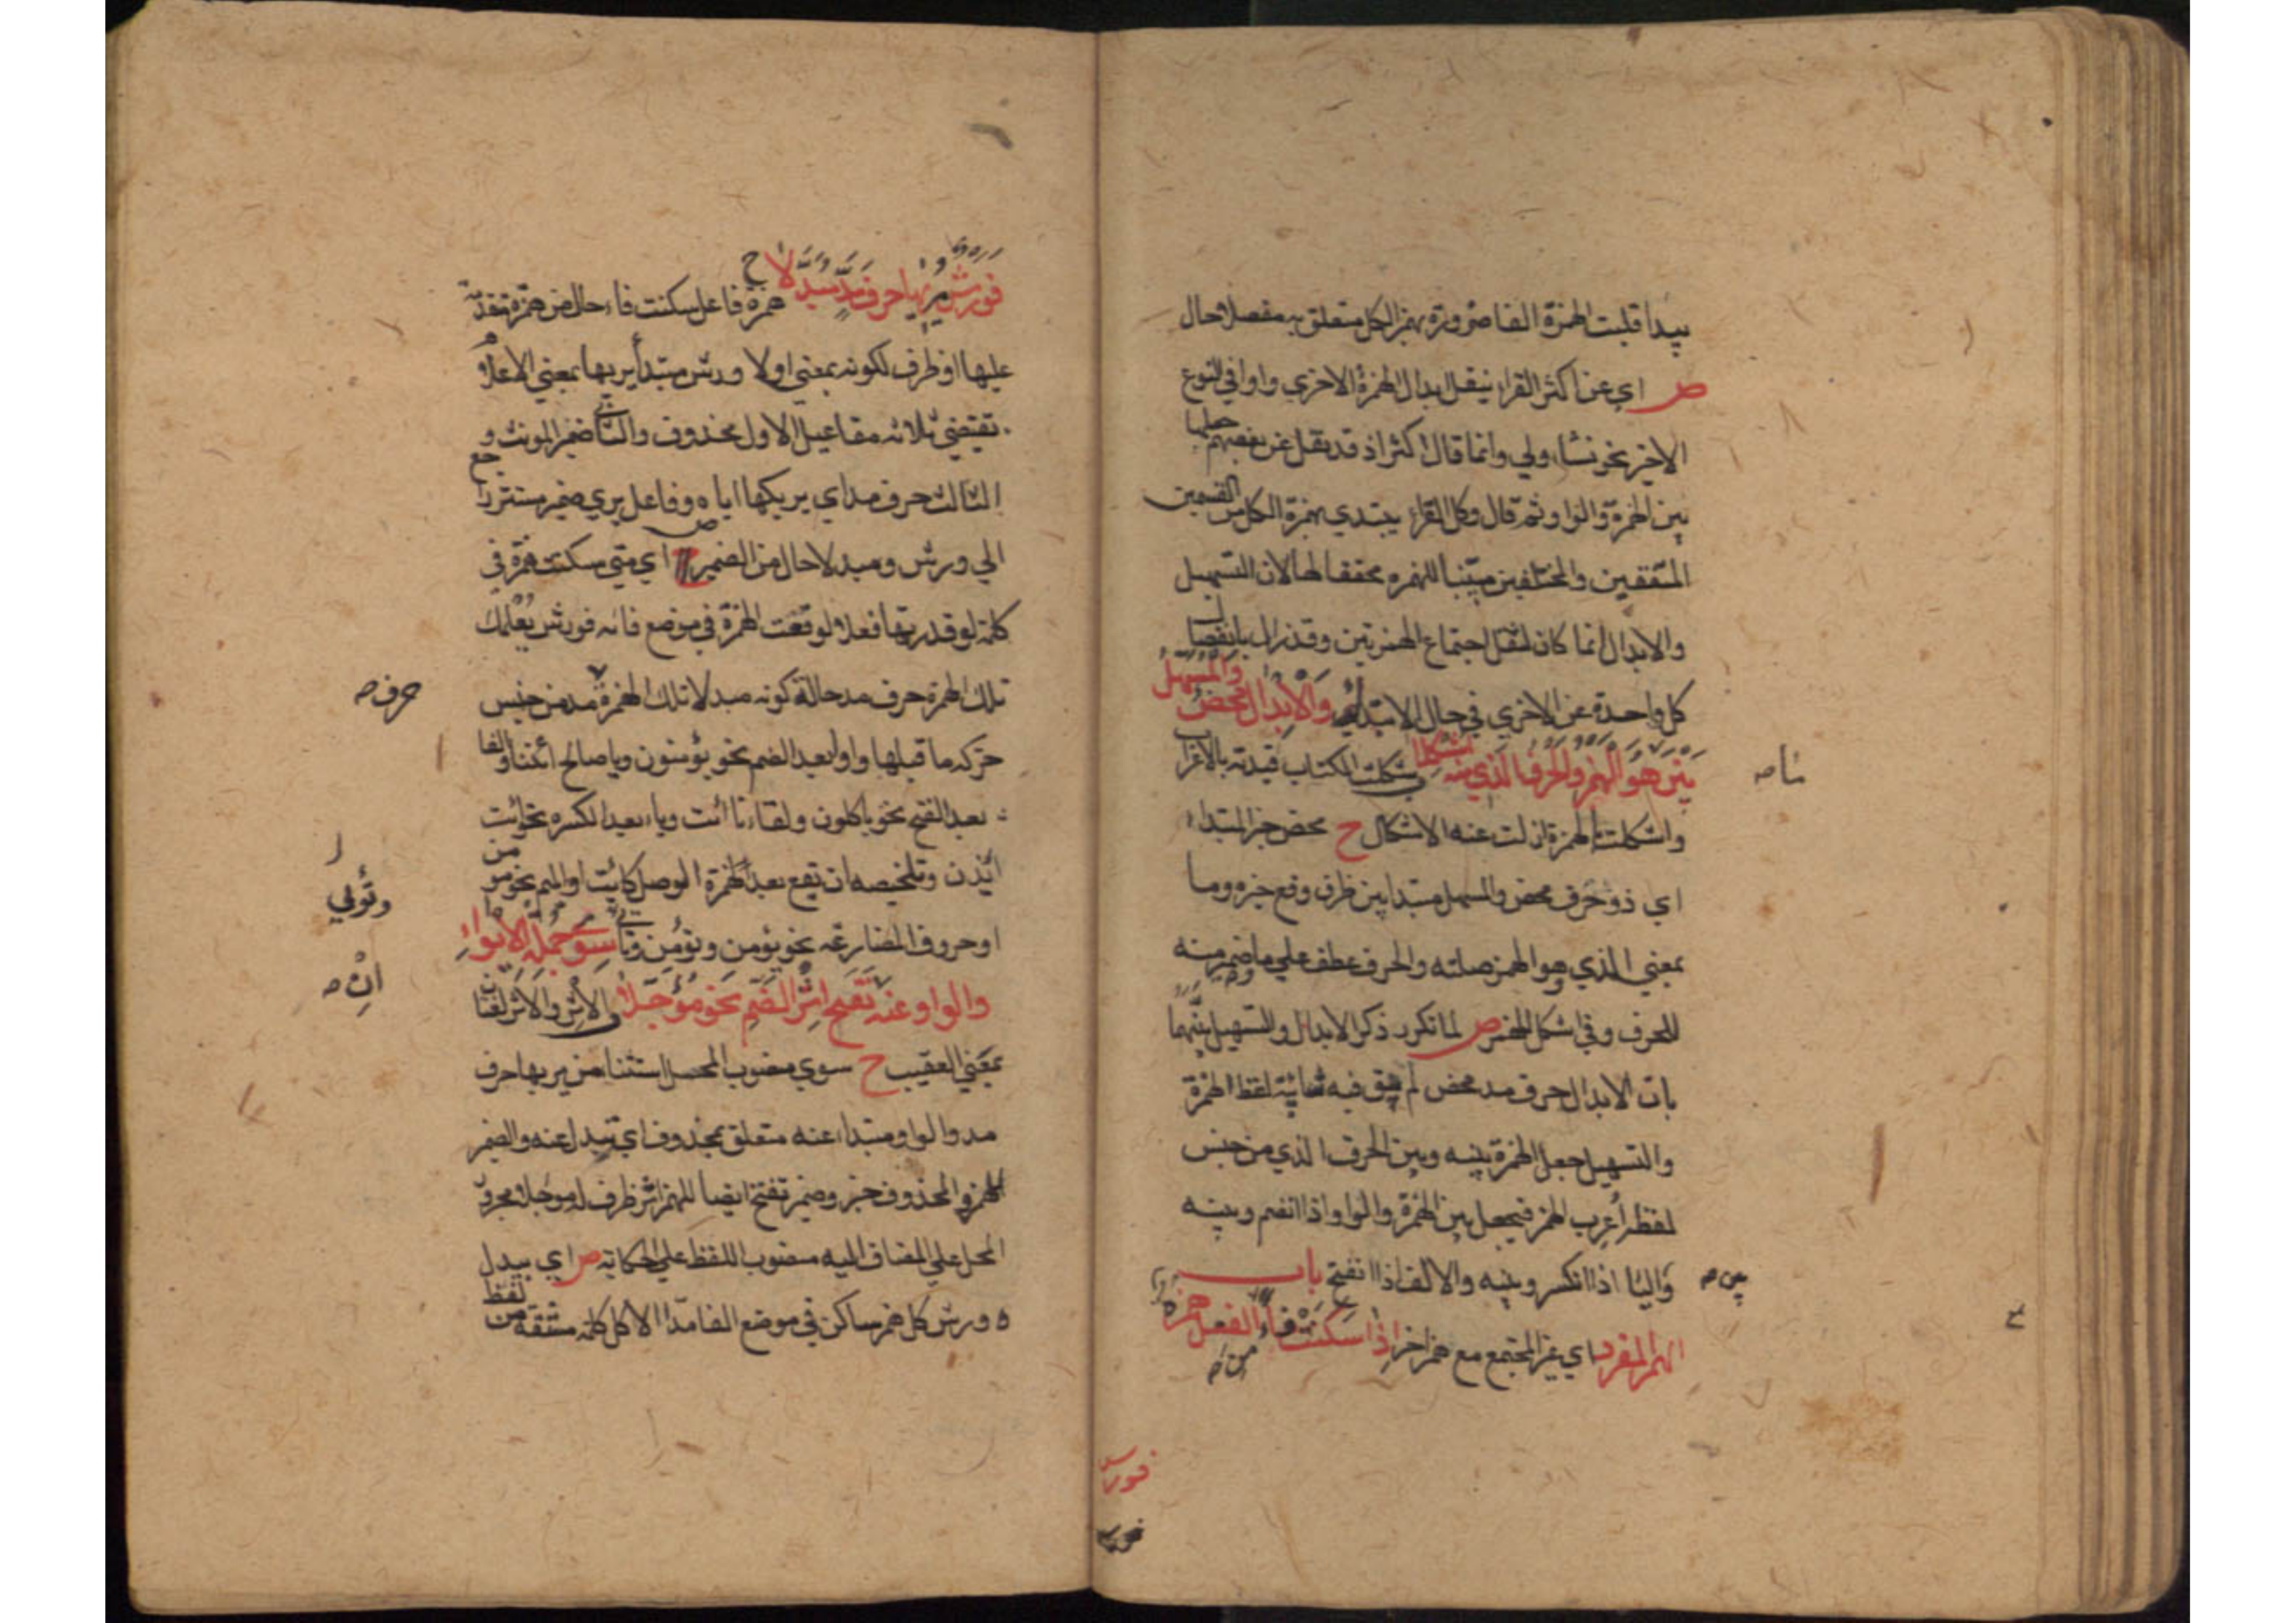 يبدا قلبت الهمزة الفا ضرورة بهمز الكل متعلق به مفصلا حال
ص اي عن اكثر القراء نيقل ابدال الهمزة الاخري واوا في النوع
الاخير نحو نشاء ولي وانما قال اكثر اذ قد نقل عن بعضهم جعلها
بين الهمزة والواو ثم قال وكل القراء يبتدي بهمزة الكل من القسمين
المتفقين والمختلفين مبينا للهمزة محققا لها لان التسهيل
والابدال انما كان لثقل اجتماع الهمزتين وقد زال بانفصال
كل واحدة عن الاخري في حال الابتداء وَالْاِبْدَالُ مَحْضٌ وَالْمُسَهَّلُ
بَيْنَ مَا هُوَ الهمز والحرف الذي منه اشكلا ب شكلت الكتاب قيدته بالاعراب
واشكلت الهمزة ازلت عنه الاشكال ح محض خبر المبتداء
اي ذو حرف محض والمسهل مبتدا بين ظرف وقع خبره وما
بمعني الذي هو الهمز صلته والحرف عطف علي ما ضمير منه
للحرف وفي اشكل للهمز ص لما تكرر ذكر الابدال والتسهيل بينهما
بان الابدال حرف مد محض لم يبق فيه شائبة لفظ الهمزة
والتسهيل جعل الهمزة بينه وبين الحرف الذي من جنس
لفظ اعرب الهمز فيجعل بين الهمزة والواو اذا انضم وبينه
واليا اذا انكسر وبينه والالف اذا انفتح باب
بين صه
الهمز المفرد اي غير المجتمع مع همز اخر اِذَا سَكَنَتْ فَاءً مِنَ الفعل همزة
فورش
فورش
فورش يُريها حرف مَدٍّ مُبَدِّلا ح همزة فاعل سكنت فاء حال من همزة تقدمت
عليها او ظرف لكونه بمعني اولا ورش مبتدأ يريها بمعني الاعلام
تقتضي ثلاثه مفاعيل الاول محذوف والثاني ضمير المونث و
الثالث حرف مد اي يريكها اياه وفاعل يري ضمير مستتر راجع
الي ورش ومبدلا حال من الضمير ص اي متي سكنت همزة في
كلمة لو قدرتها فعلا لوقعت الهمزة في موضع فائه فورش يُعلمك
تلك الهمزة حرف مد حالة كونه مبدلا تلك الهمزة مد من جنس
حرف صه
حركه ما قبلها واوا بعد الضم نحو يؤمنون ويا صالح ائتنا والفا
بعد الفتح نحو ياكلون ولقاءنا ائت وياء بعد الكسره نحو ائت
ائذن وتلخيصه ان تقع بعد همزة الوصل كائت او الميم نحو مومن
او حروف المضارعه نحو يؤمن ونؤمن وتأتي سِوَى جُمْلَة الْاِيوَاءِ
وتؤلي
والواو عنه تَفَتَّحَ اِثْرَ الضَّمِ نَحْوَ مُؤَجَّلَا ب الاِثْر والاَثَر لغتان
انْ صه
بمعني العقيب ح سوي منصوب المحل استثنا من يريها حرف
مد والواو مبتداء عنه متعلق بمحذوف اي تبدل عنه والضمير
للهمز والمحذوف خبر وضمير تفتح ايضا للهمز اثر ظرف له موجلا مجرور
المحل علي المضاف اليه منصوب اللفظ علي الحكايه ص اي يبدل
ورش كل همز ساكن في موضع الفا مدّا الا كل كلمه مشتقه من لفظ